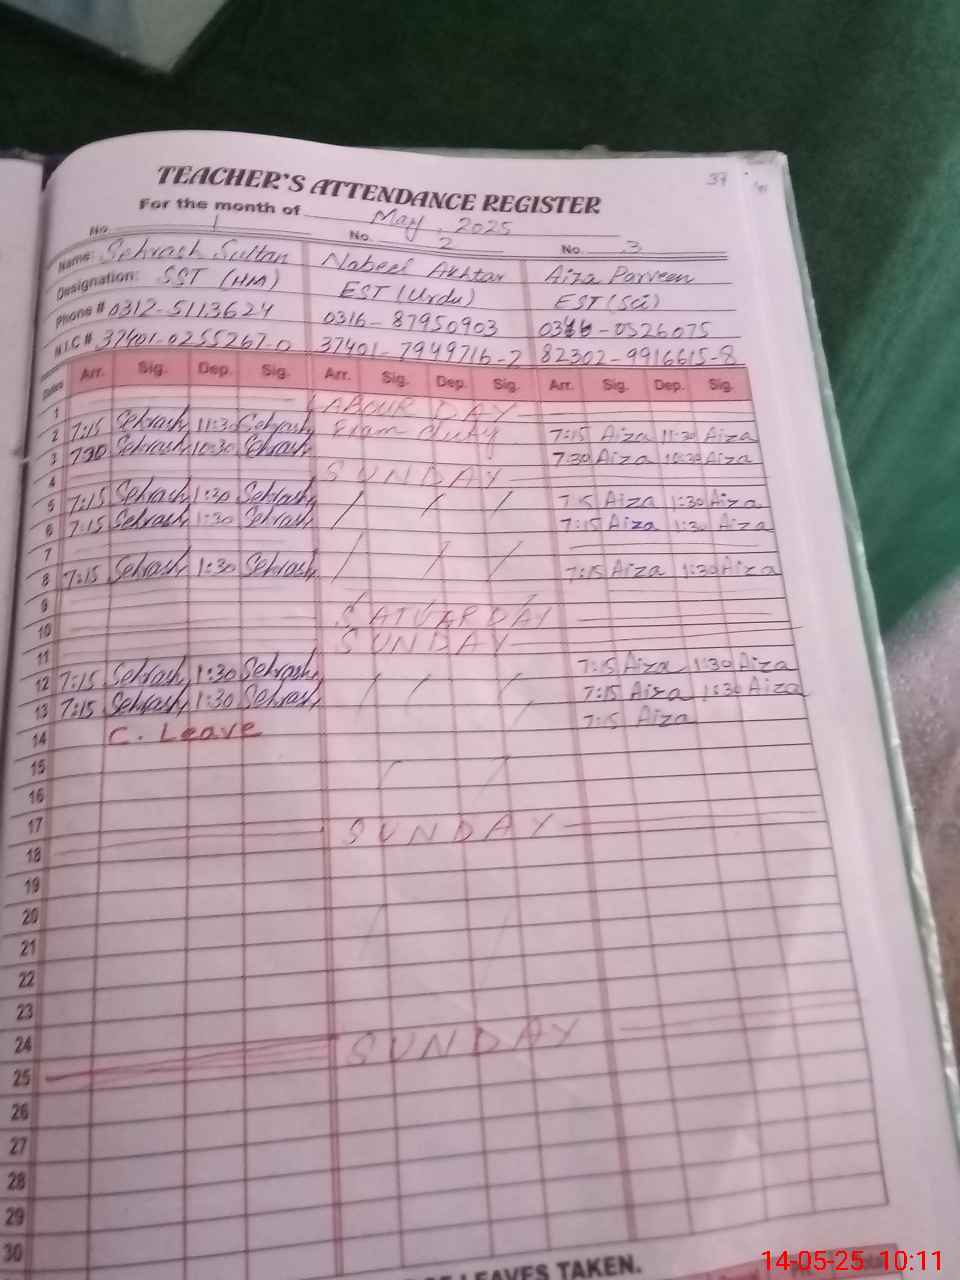 37
TEACHER'S ATTENDANCE REGISTER
For the month of May, 2025
No. 1 No. 2 No. 3
Name: Sehrash Sultan Nabeel Akhtar Aiza Parveen
Designation: SST (HM) EST (Urdu) EST (Sci)
Phone # 0312-5113624 0316-87950903 0346-0526075
N.I.C # 37401-0255267-0 37401-7949716-2 82302-9916615-8
Dates Arr. Sig. Dep. Sig. Arr. Sig. Dep. Sig. Arr. Sig. Dep. Sig.
1 LABOUR DAY
2 7:15 Sehrash 11:30 Sehrash Exam duty 7:15 Aiza 11:30 Aiza
3 7:30 Sehrash 10:30 Sehrash 7:30 Aiza 10:30 Aiza
4 SUNDAY
5 7:15 Sehrash 1:30 Sehrash / / / 7:15 Aiza 1:30 Aiza
6 7:15 Sehrash 1:30 Sehrash 7:15 Aiza 1:30 Aiza
7 / / /
8 7:15 Sehrash 1:30 Sehrash / / / 7:15 Aiza 1:30 Aiza
9
10 SATURDAY
11 SUNDAY
12 7:15 Sehrash 1:30 Sehrash 7:15 Aiza 1:30 Aiza
13 7:15 Sehrash 1:30 Sehrash / / / 7:15 Aiza 1:30 Aiza
14 C. Leave 7:15 Aiza
15
16
17
18 SUNDAY
19
20
21
22
23
24
25 SUNDAY
26
27
28
29
30
LEAVES TAKEN.
14-05-25 10:11